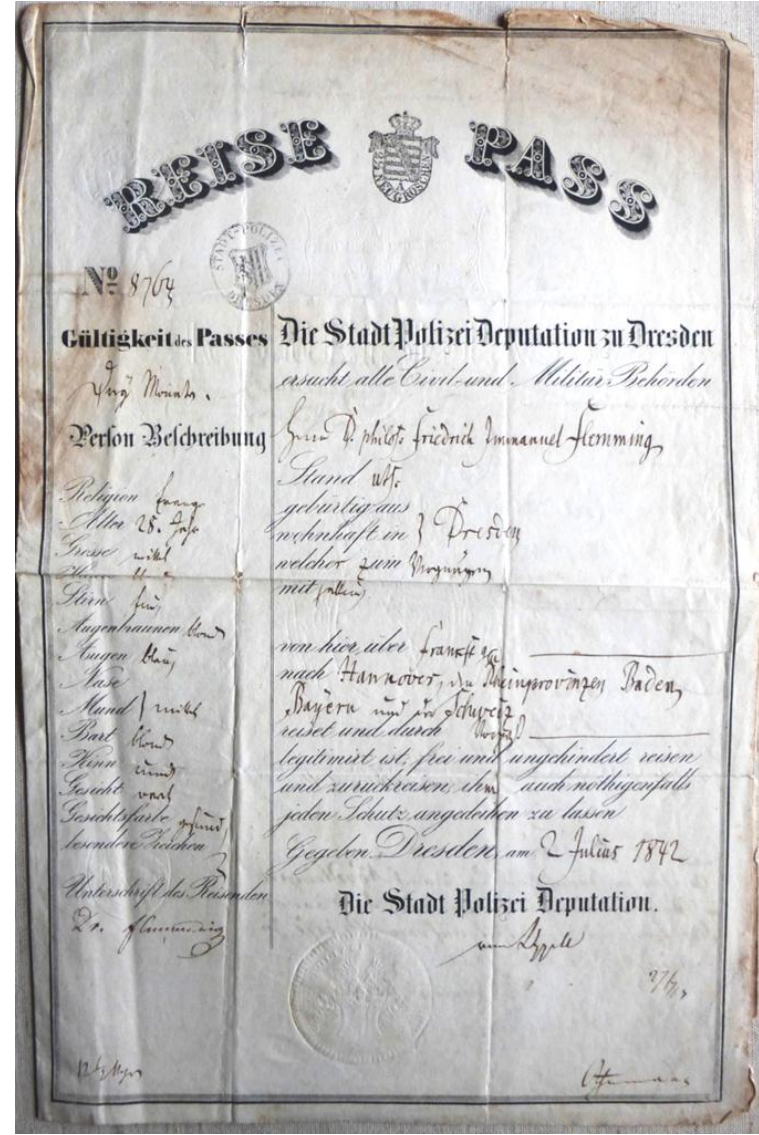 REISE PASS
NEUGROSCHEN
STADT-POLIZEI DRESDEN
No 8764
Gültigkeit des Passes
Drey Monate.
Person Beschreibung
Religion Evang
Alter 28. Jahr
Grösse mittel
Haare
Stirn frey
Augenbraunen blond
Augen blau
Nase
Mund } mittel
Bart blond
Kinn rund
Gesicht oval
Gesichtsfarbe gesund,
besondere Zeichen
Unterschrift des Reisenden
Dr. Flemming
Die Stadt Polizei Deputation zu Dresden
ersucht alle Civil- und Militär Behörden
Herrn D. philos. Friedrich Immanuel Flemming
Stand uts.
gebürtig aus
wohnhaft in } Dresden
welcher zum Vergnügen
mit
von hier über Frankft
nach Hannover, den Rheinprovinzen Baden,
Bayern und der Schweiz
reiset und durch
legitimirt ist, frei und ungehindert reisen
und zurückreisen, ihm auch nöthigenfalls
jeden Schutz angedeihen zu lassen
Gegeben Dresden, am 2 Julius 1842
Die Stadt Polizei Deputation.